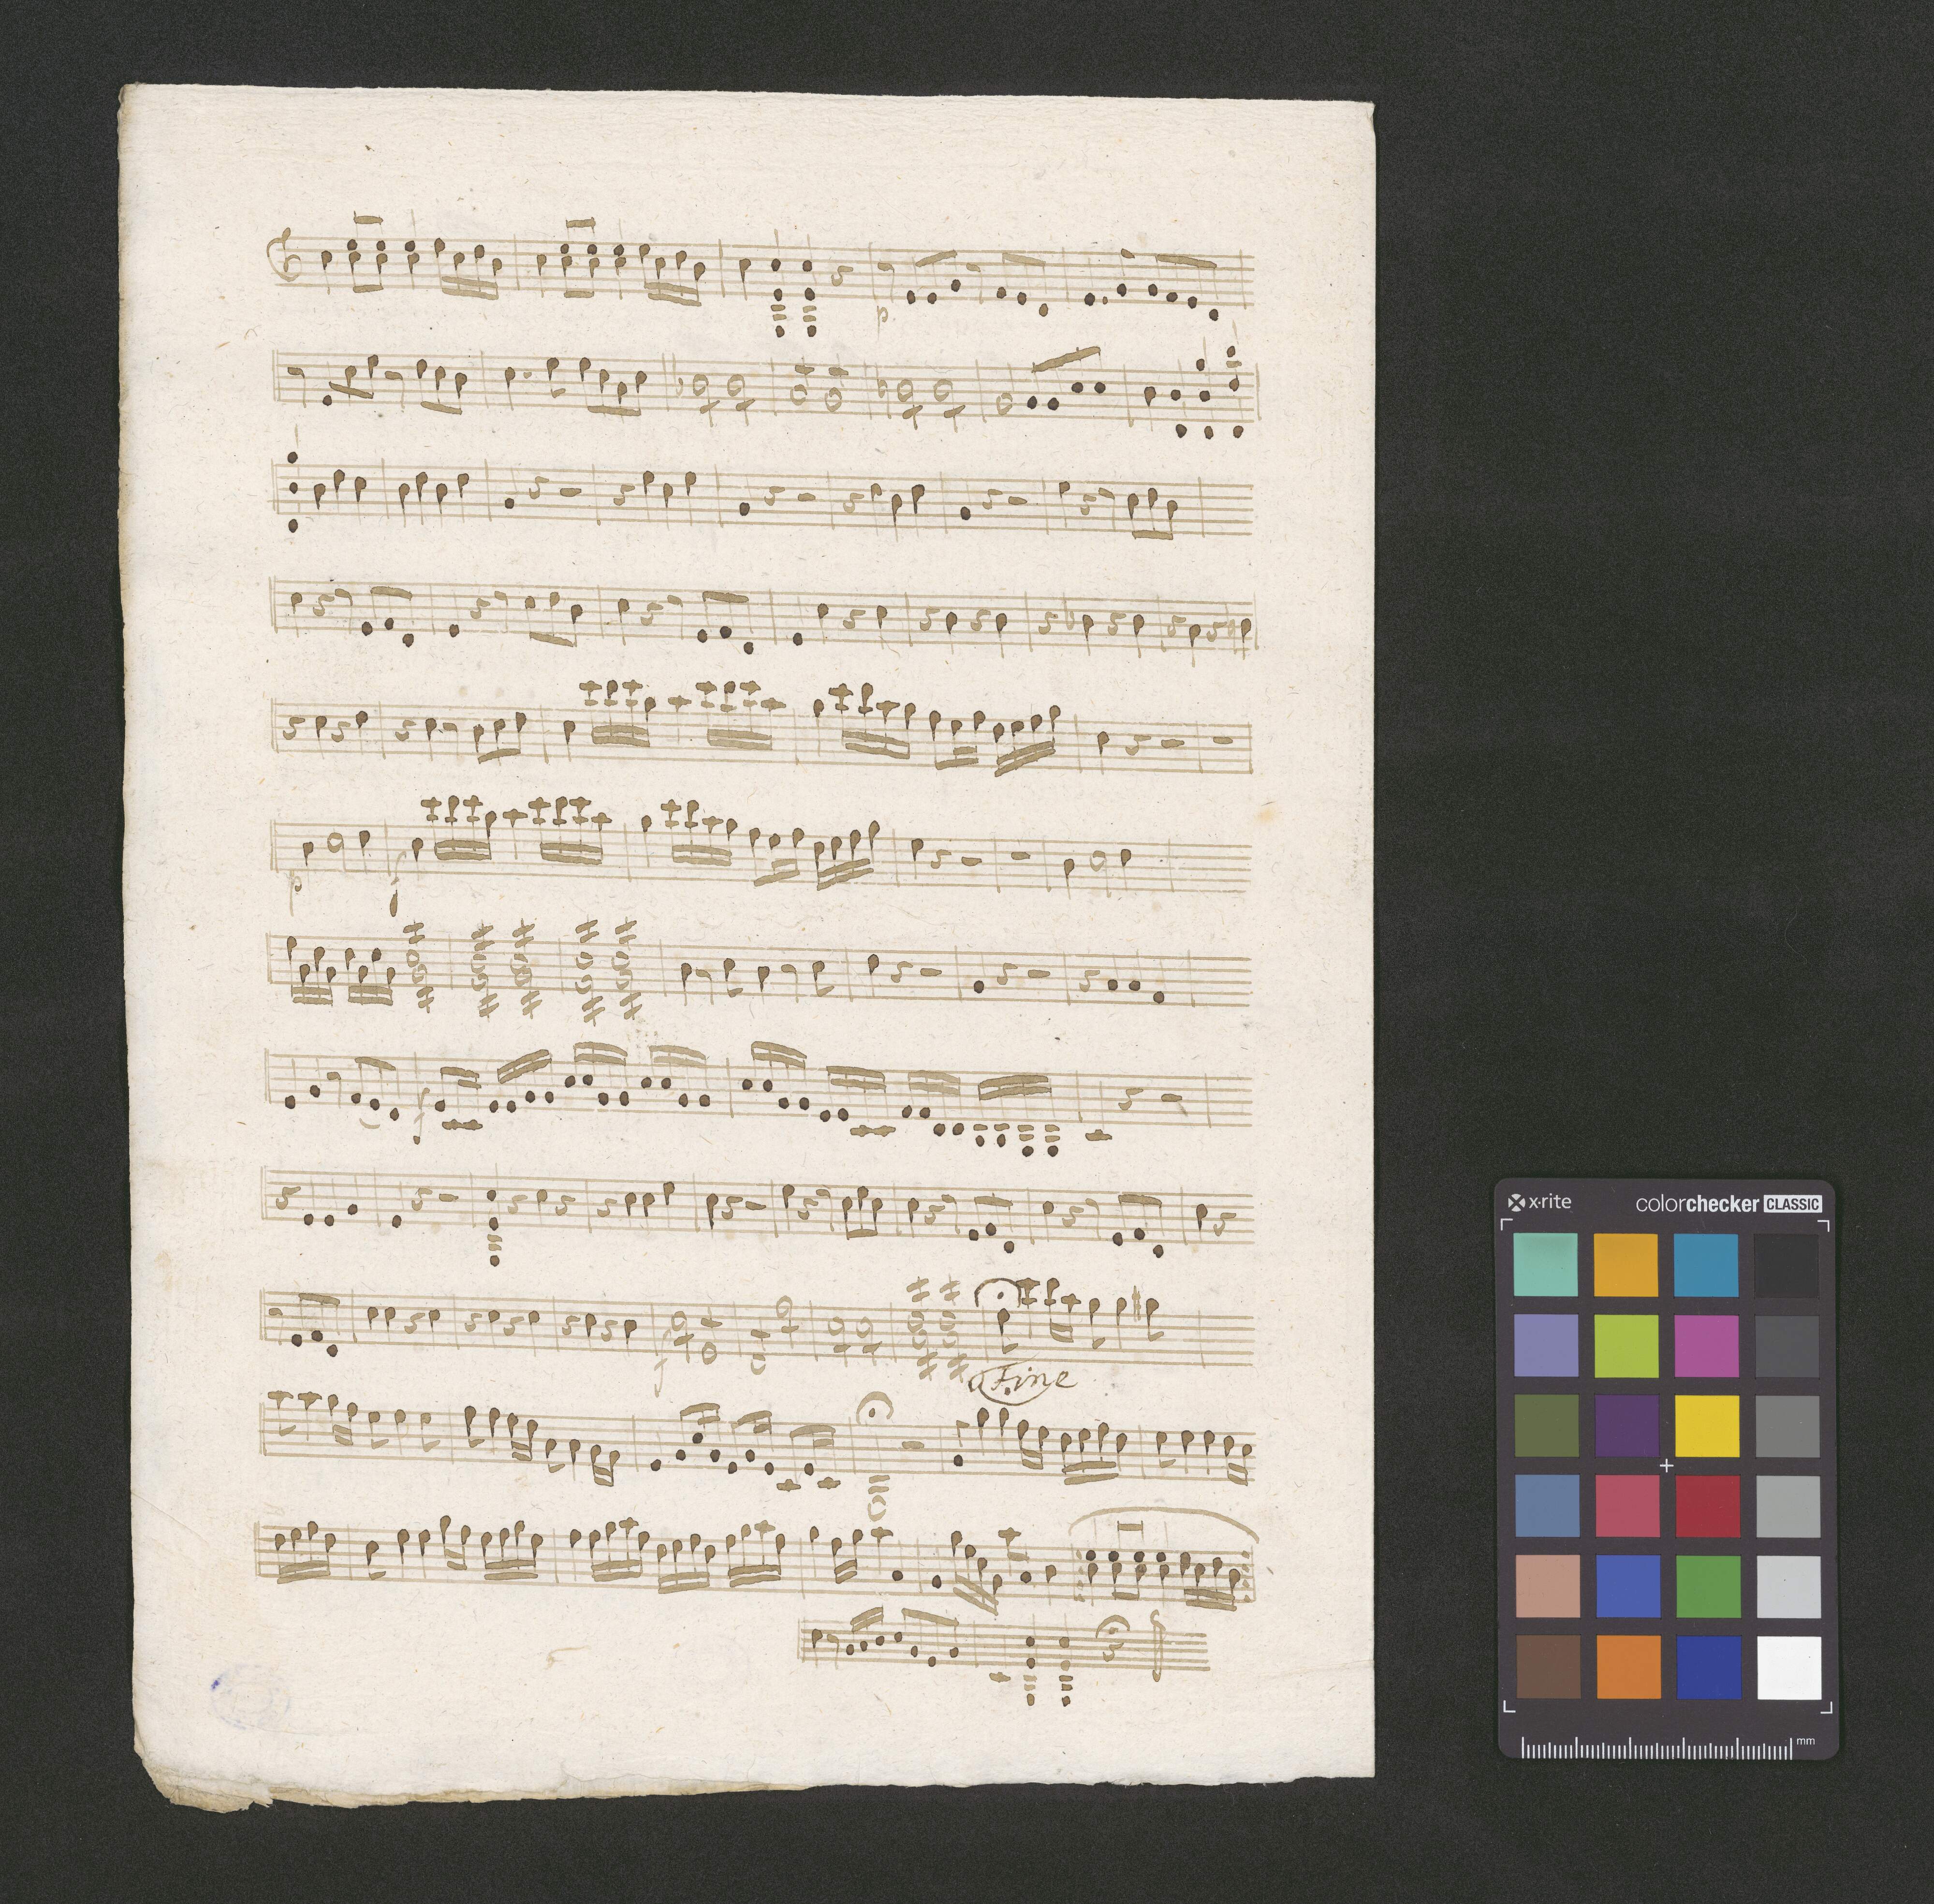 p
p
f
f
f
Fine
x-rite colorchecker CLASSIC
mm